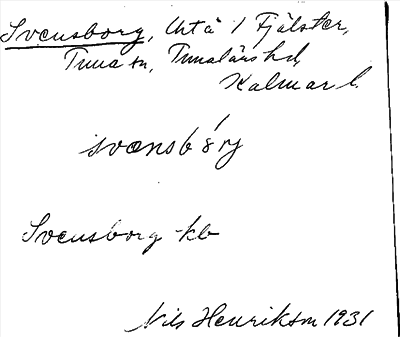 Svensborg, Urtå 1 Fjälster,
Tuna sn, Tunaläns hd,
Kalmar l.
svænsbór̨j
Svensborg kb
Nils Henrikson 1931